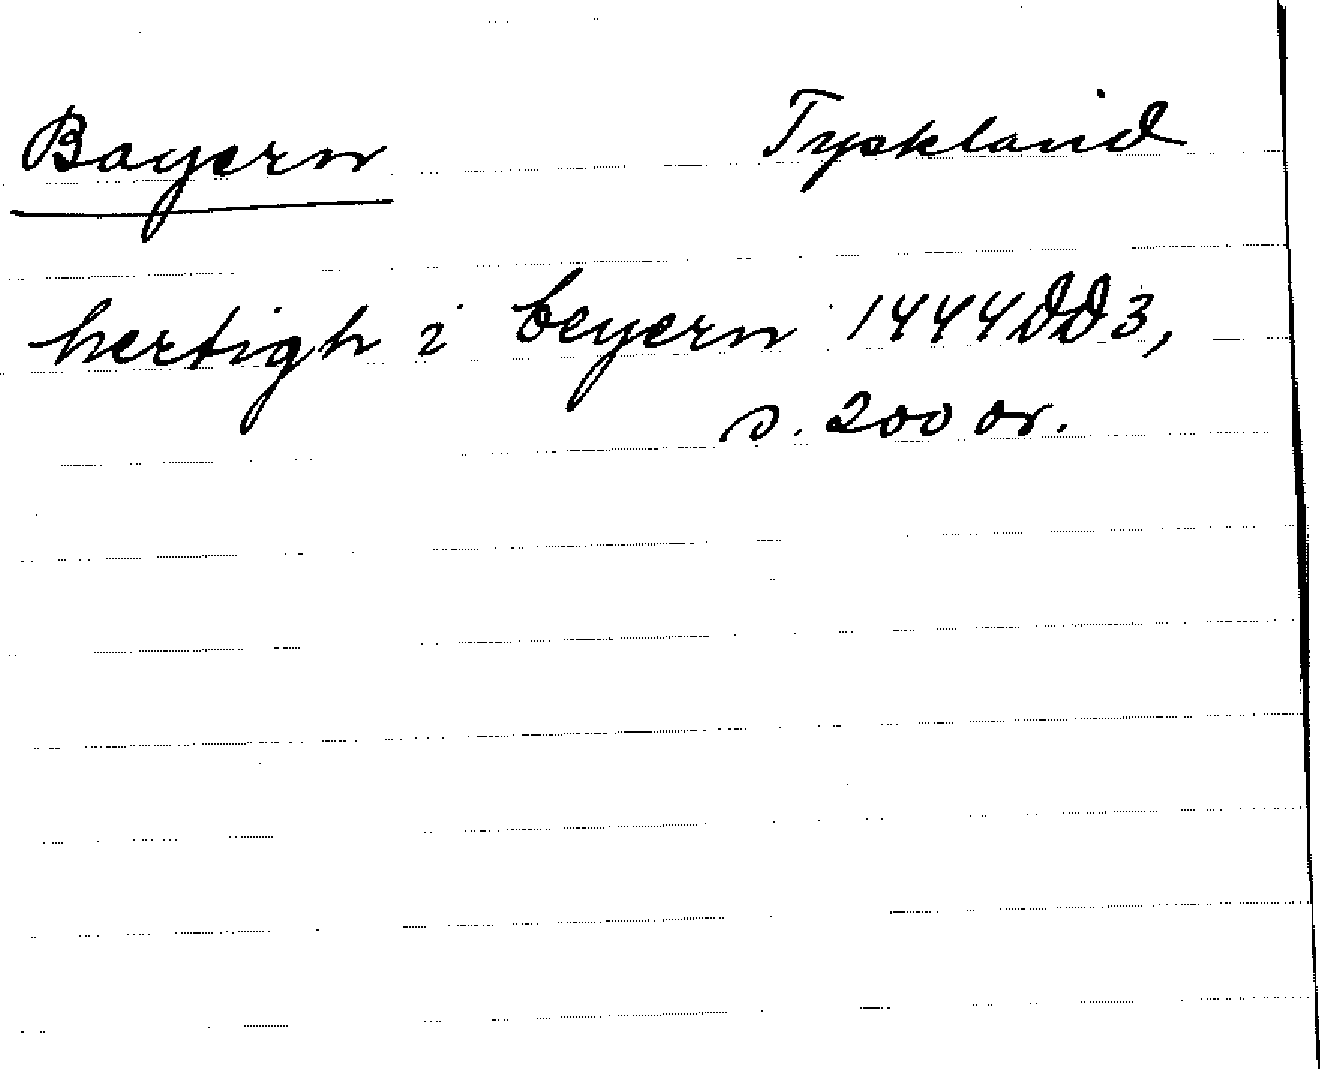 Bayern Tyskland
hertigh i beyern 1444 DD3,
s. 200 or.